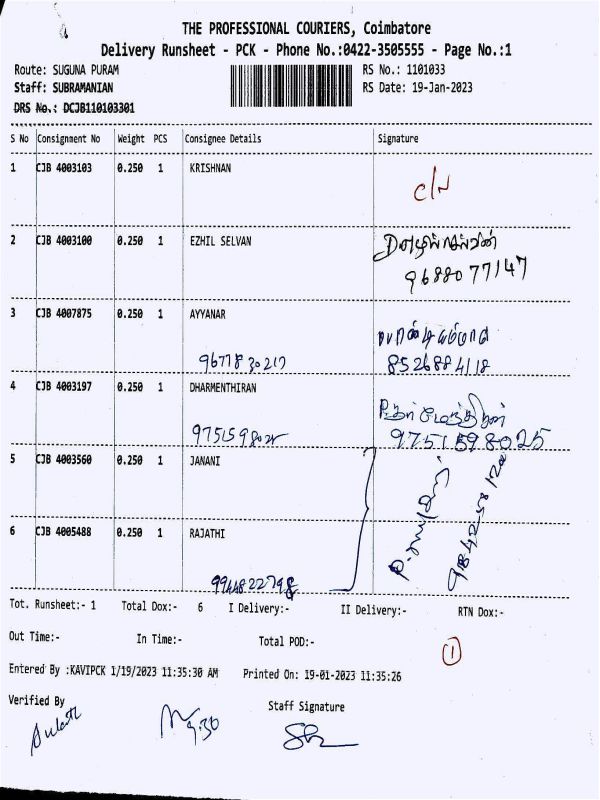 THE PROFESSIONAL COURIERS, Coimbatore
Delivery Runsheet - PCK - Phone No.:0422-3505555 - Page No.:1
Route: SUGUNA PURAM RS No.: 1101033
Staff: SUBRAMANIAN RS Date: 19-Jan-2023
DRS No.: DCJB110103301
S No Consignment No Weight PCS Consignee Details Signature
1 CJB 4003103 0.250 1 KRISHNAN
C/N
2 CJB 4003100 0.250 1 EZHIL SELVAN
9688077147
3 CJB 4007875 0.250 1 AYYANAR
பாண்டியம்மாள்
9677830217 8526884118
4 CJB 4003197 0.250 1 DHARMENTHIRAN
9751598025
5 CJB 4003560 0.250 1 JANANI
6 CJB 4005488 0.250 1 RAJATHI
Tot. Runsheet:- 1 Total Dox:- 6 I Delivery:- II Delivery:- RTN Dox:-
Out Time:- In Time:- Total POD:-
1
Entered By :KAVIPCK 1/19/2023 11:35:30 AM Printed On: 19-01-2023 11:35:26
Verified By Staff Signature